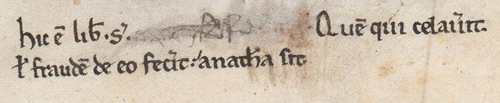 hic ē lib̄. sc̄i. Quē qui celauʼit.
ł fraudē de eo fecʼit: anathema sit